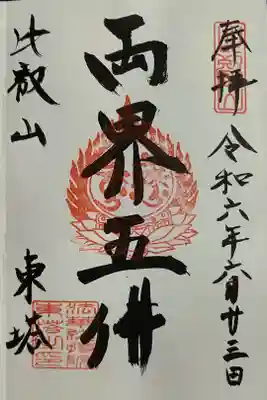 奉拝
令和六年六月廿三日
両界五佛
比叡山
東塔